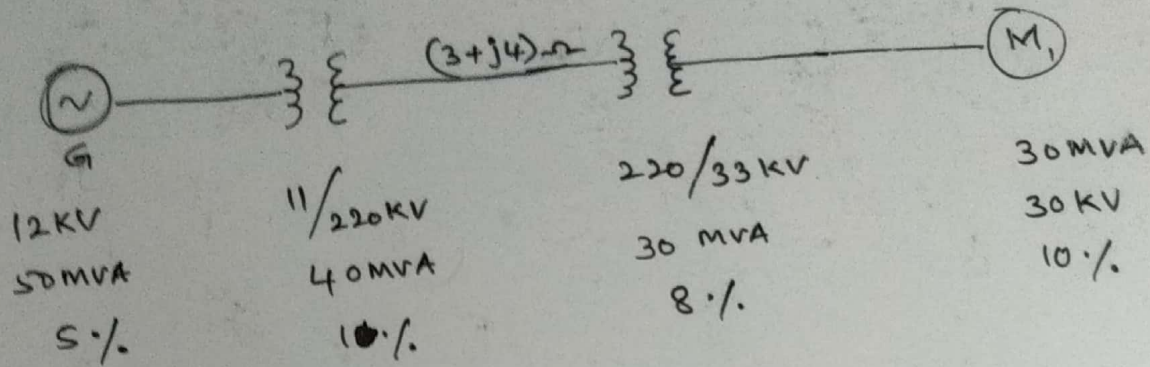 (3+j4)Ω
M₁
~
G
12KV
50MVA
5%
11/220KV
40MVA
10%
220/33KV
30 MVA
8%
30MVA
30KV
10%